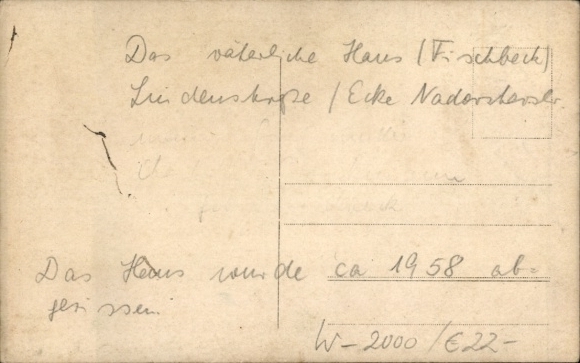 Das väterliche Haus (Fischbeck)
Lindenstraße / Ecke Nadorsterstr.
Das Haus wurde ca 1958 ab=
gerissen.
W-2000 / €22-